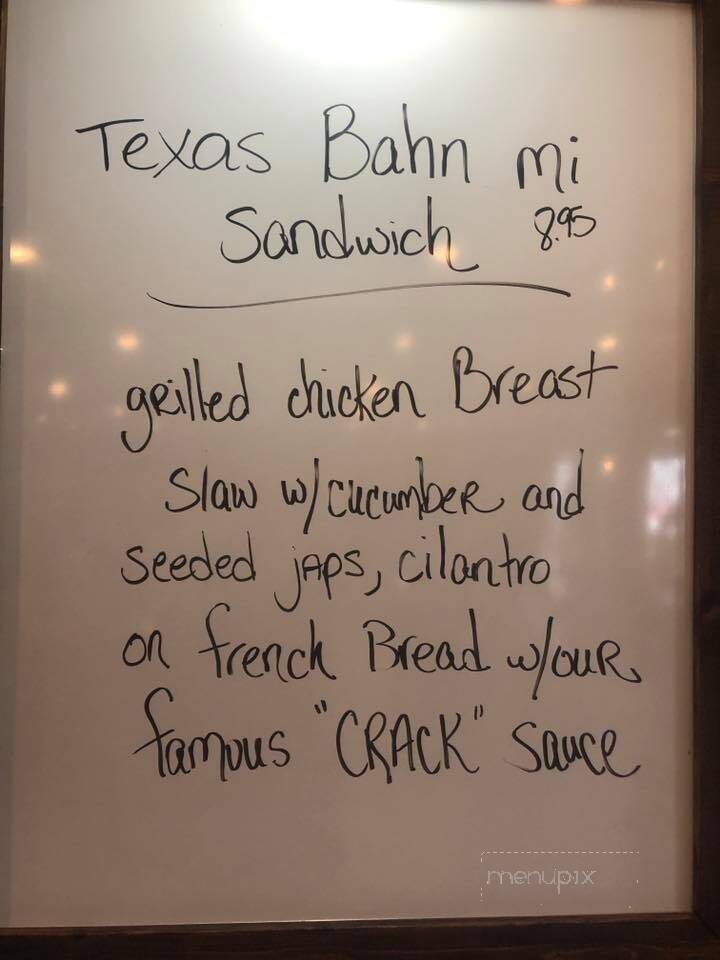 Texas Bahn mi
Sandwich 8.95
grilled chicken Breast
Slaw w/cucumber and
seeded japs, cilantro
on french Bread w/our
famous "CRACK" sauce
menupix